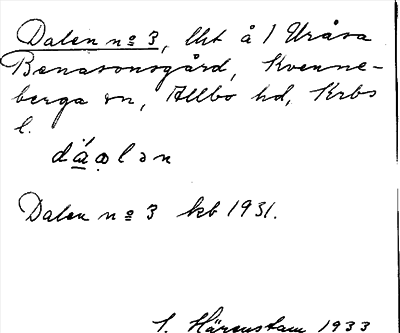 Dalen nº 3, lht å 1 Uråsa
Benasonsgård, Kvenne-
berga sn, Allbo hd, Krbs
l.
dá̲ꬲlən
Dalen nº 3 kb 1931.
S. Härenstam 1933